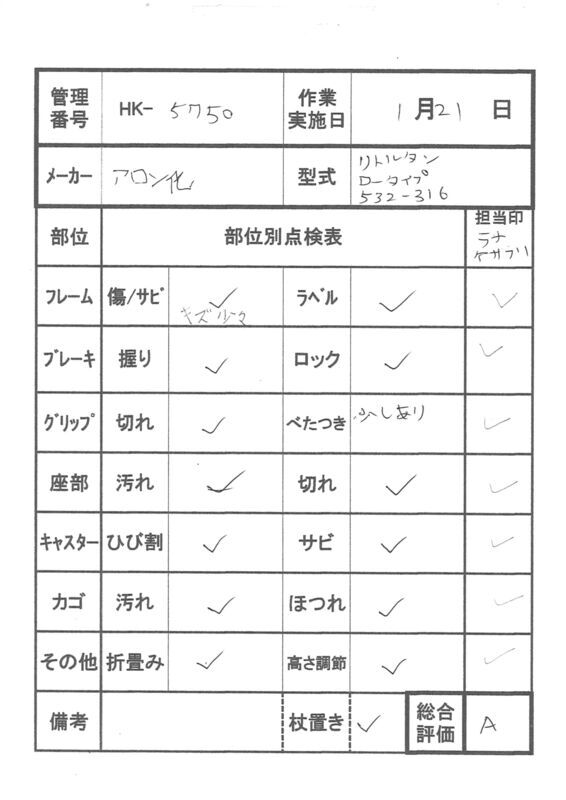 管理番号 HK- 5750 作業実施日 1月21日
メーカー アロン化 型式 リトルタン
ロータイプ
532-316
部位 部位別点検表 担当印
ラナ
ケサラリ
フレーム 傷/サビ ✓ キズ少々 ラベル ✓ ✓
ブレーキ 握り ✓ ロック ✓ ✓
グリップ 切れ ✓ べたつき 少しあり ✓
座部 汚れ ✓ 切れ ✓ ✓
キャスター ひび割 ✓ サビ ✓ ✓
カゴ 汚れ ✓ ほつれ ✓ ✓
その他 折畳み ✓ 高さ調節 ✓ ✓
備考 杖置き ✓ 総合評価 A